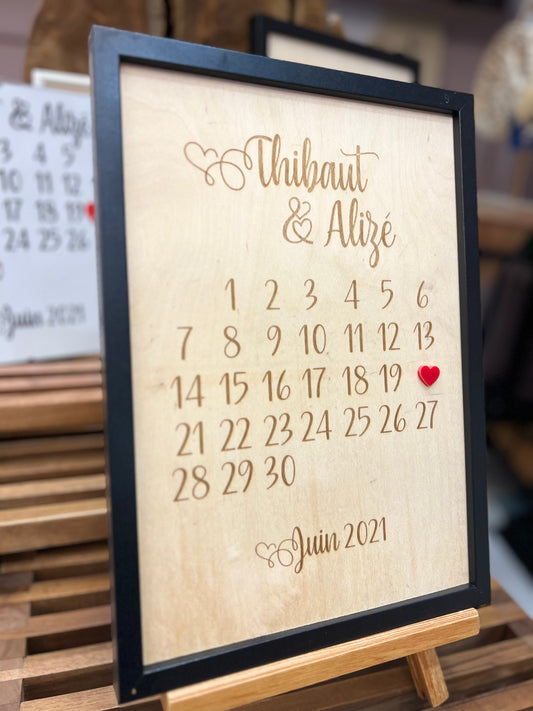 Thibaut
& Alizé
1 2 3 4 5 6
7 8 9 10 11 12 13
14 15 16 17 18 19
21 22 23 24 25 26 27
28 29 30
Juin 2021
& Alizé
3 4 5
10 11 12
17 18 19
24 25 26
Juin 2021